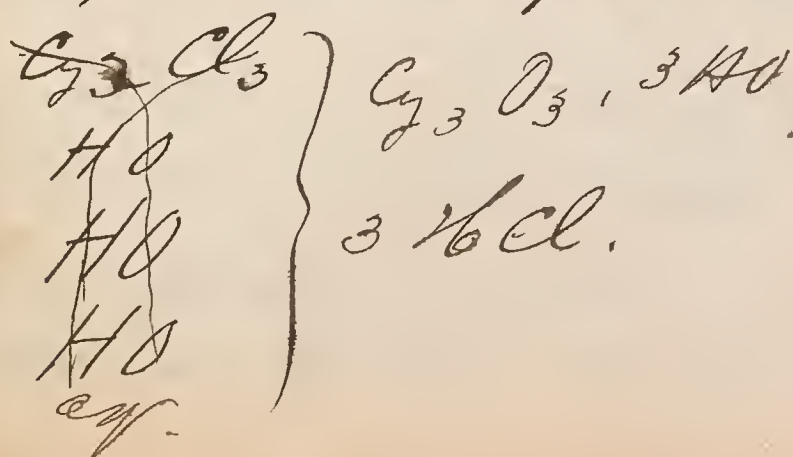 Cy3 Cl3
HO
HO
HO
aq.
Cy3 O3, 3HO,
3 HCl.